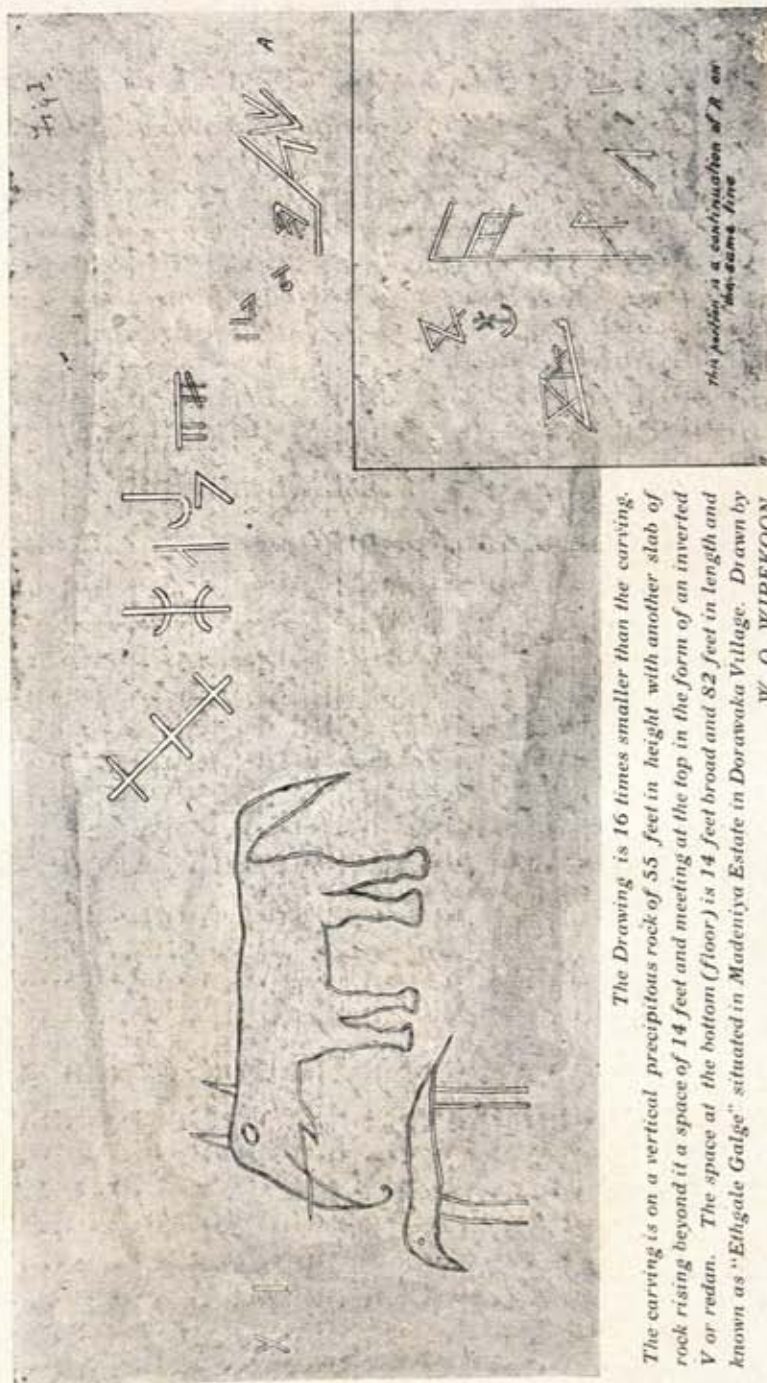 Fig I.
A
This portion is a continuation of A on
the same line
The Drawing is 16 times smaller than the carving.
The carving is on a vertical precipitous rock of 55 feet in height with another slab of
rock rising beyond it a space of 14 feet and meeting at the top in the form of an inverted
V or redan. The space at the bottom (floor) is 14 feet broad and 82 feet in length and
known as "Ethgale Galge" situated in Madeniya Estate in Dorawaka Village. Drawn by
W. O. WIREKOON